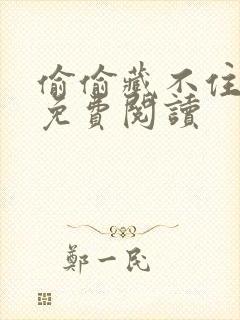 偷偷藏不住
免費閱讀
鄭一民